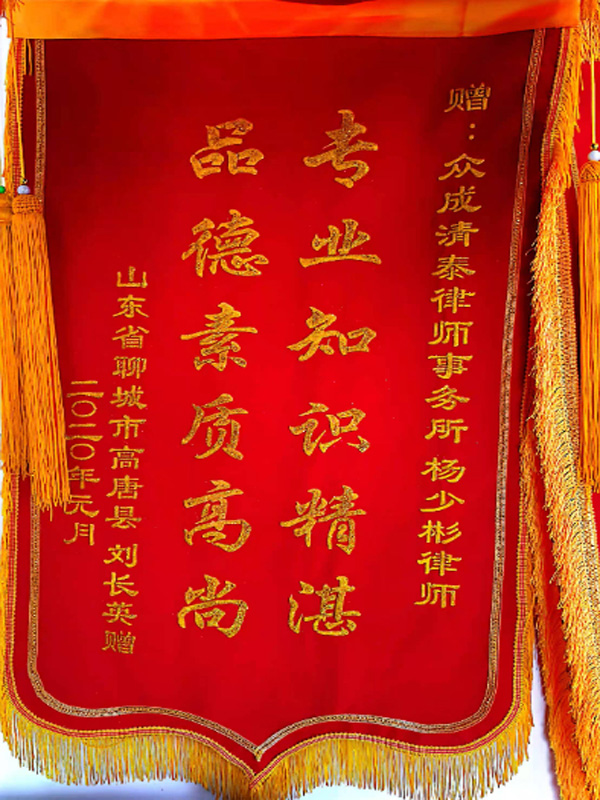 赠：众成清泰律师事务所 杨少彬律师
专业知识精湛
品德素质高尚
山东省聊城市高唐县 刘长英赠
二〇二〇年元月